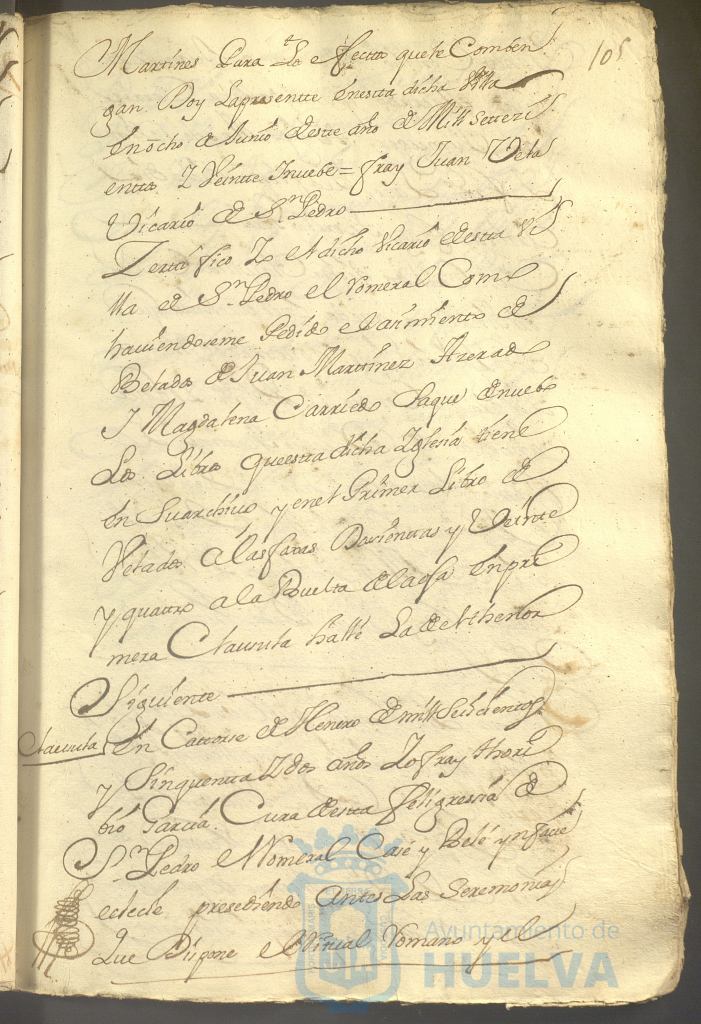 105
Martines Para Lo efectto que le Comben
gan Doy Lapresentte Enestta dicha Villa
En ocho de Junio deste año de Mill Settezi
enttos Y Veintte Y nuebe = fray Juan Vela
Vicario de Sn. Pedro
Zertifico Yo el dicho Vicario destta Vi
lla de Sn. Pedro el Romeral Como
haviendoseme Pedido el Casamiento de
Belados de Juan Martinez
Y Magdalena Carriedo Saque denuebo
Los Libros questta dicha Yglesia tiene
En Suarchivo y enel Primer Libro de
Velados a las foxas Dosienttas y Veinte
y quattro a la Buelta dela oja Enpri
mera Clausula hallé La del thenor
Siguiente
Clausula En Cattorse de Henero de mill Seiscientos
y Sinquentta Y dos años Yo fray thori
bio Garcia Cura destta feligressia de
Sn. Pedro el Romeral Casé y Belé ynfacie
eclecie presediendo antes Las Seremonias
Que Dispone el Ritual Romano y el
Ayuntamiento de
HUELVA